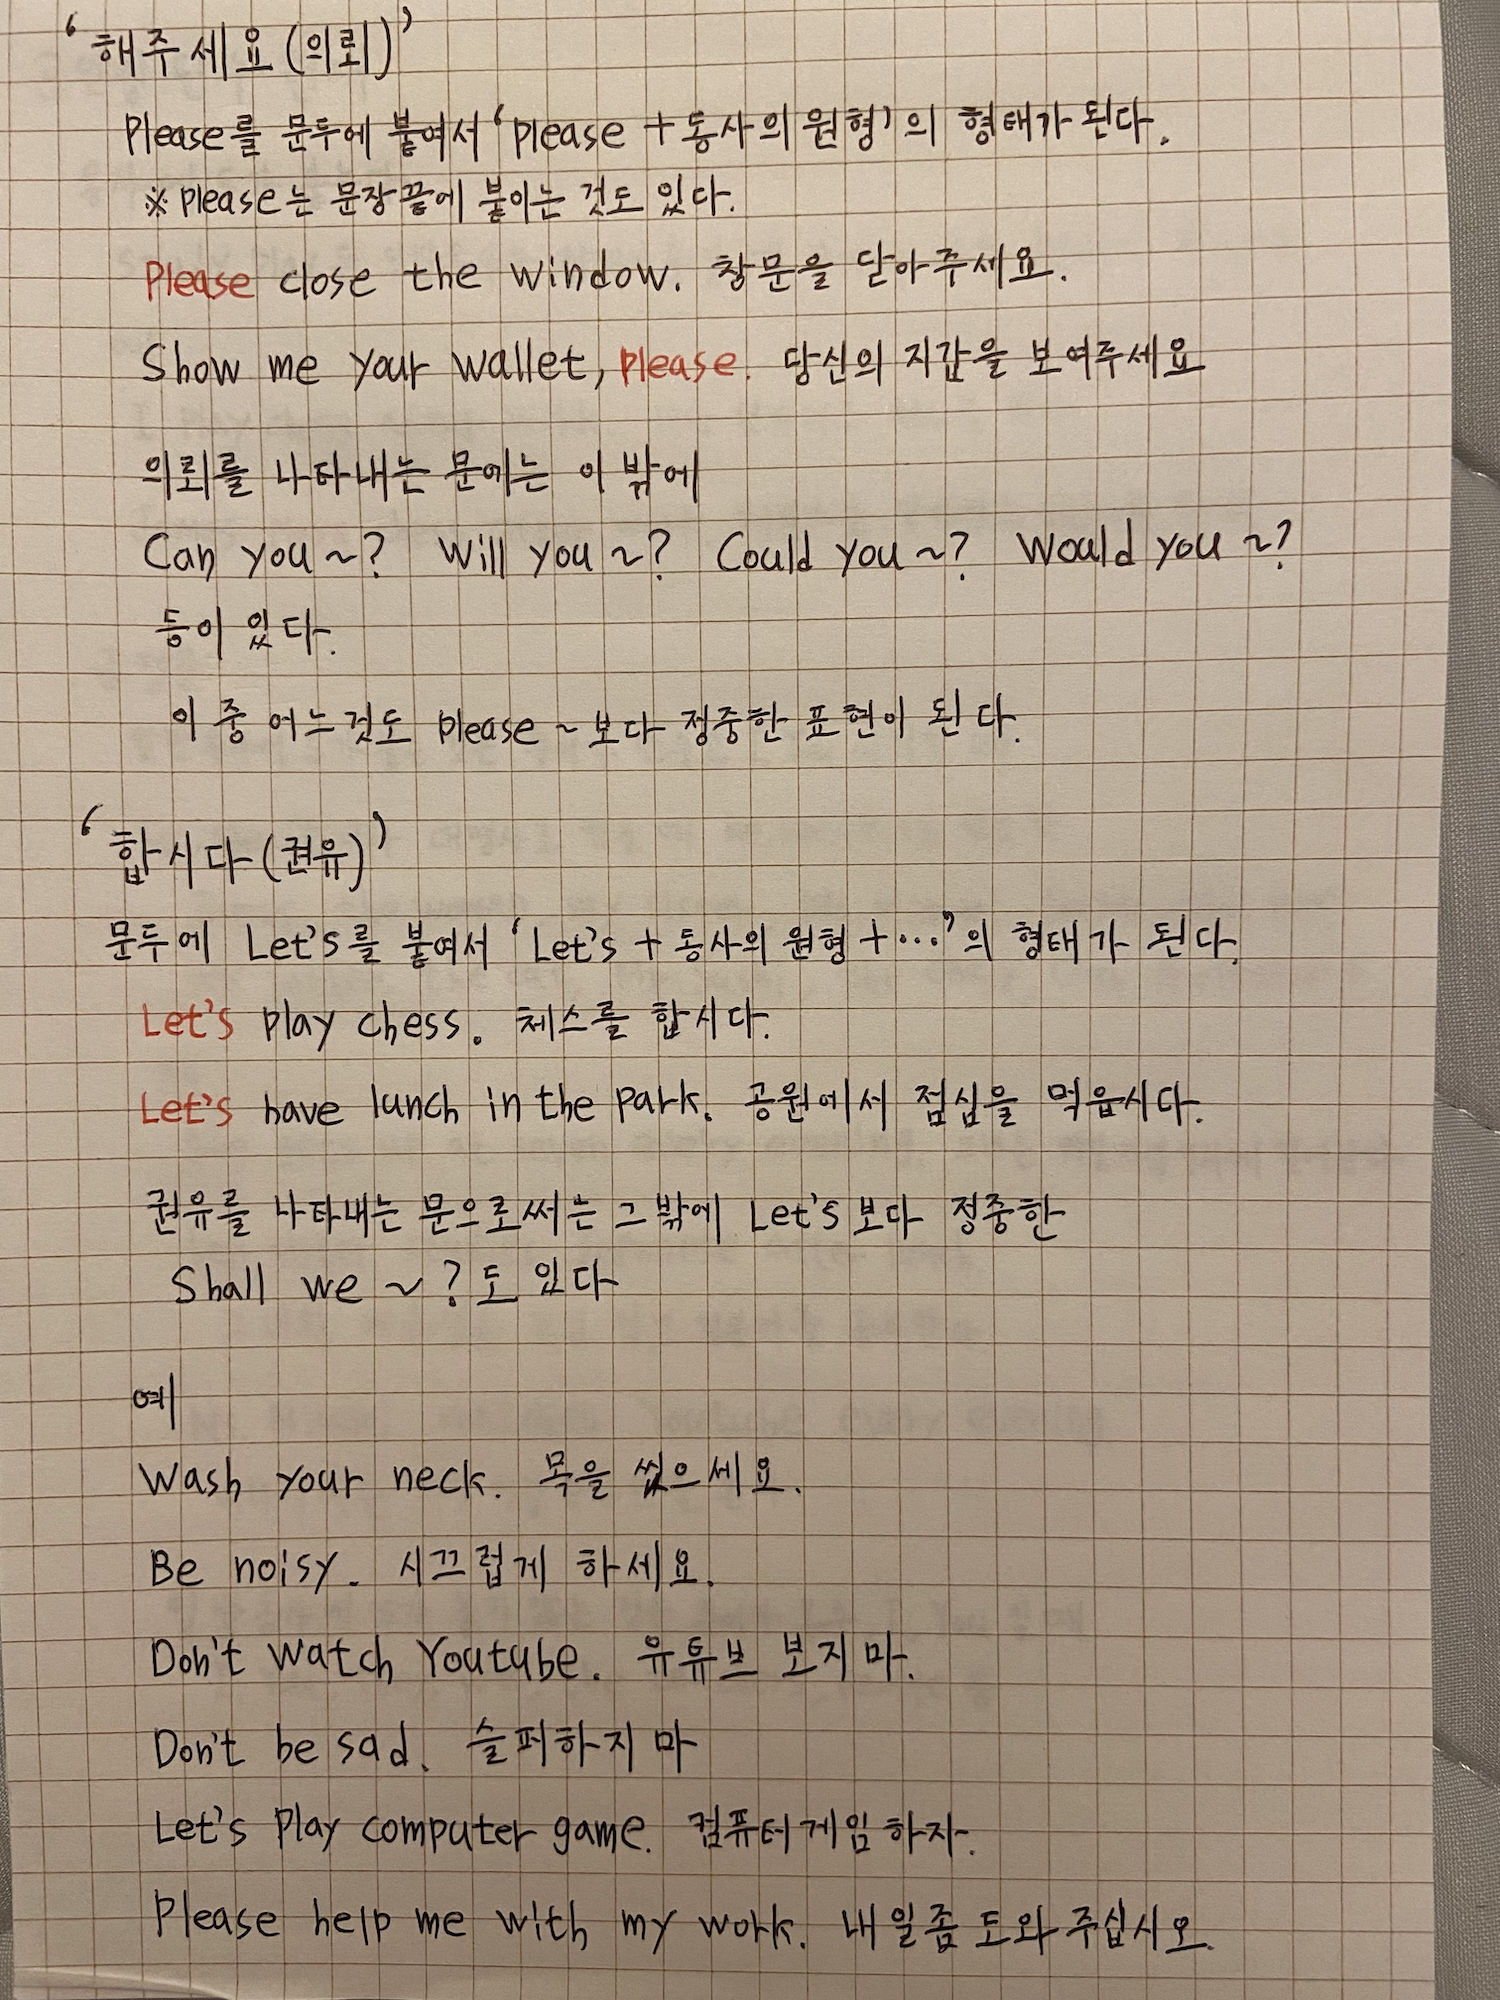 ‘해주세요(의뢰)’
Please를 문두에 붙여서 ‘please + 동사의 원형’의 형태가 된다.
※ please는 문장끝에 붙이는 것도 있다.
Please close the window. 창문을 닫아주세요.
Show me your wallet, please. 당신의 지갑을 보여주세요
의뢰를 나타내는 문에는 이 밖에
Can you ~? Will you ~? Could you ~? Would you ~?
등이 있다.
이 중 어느것도 please ~ 보다 정중한 표현이 된다.
‘합시다(권유)’
문두에 Let's를 붙여서 ‘Let's + 동사의 원형 + …’의 형태가 된다.
Let's play chess. 체스를 합시다.
Let's have lunch in the park. 공원에서 점심을 먹읍시다.
권유를 나타내는 문으로써는 그밖에 Let's보다 정중한
Shall we ~? 도 있다
예
Wash your neck. 목을 씼으세요.
Be noisy. 시끄럽게 하세요.
Don't watch Youtube. 유튜브 보지마.
Don't be sad. 슬퍼하지 마
Let's play computer game. 컴퓨터게임하자.
Please help me with my work. 내일좀 도와주십시오.